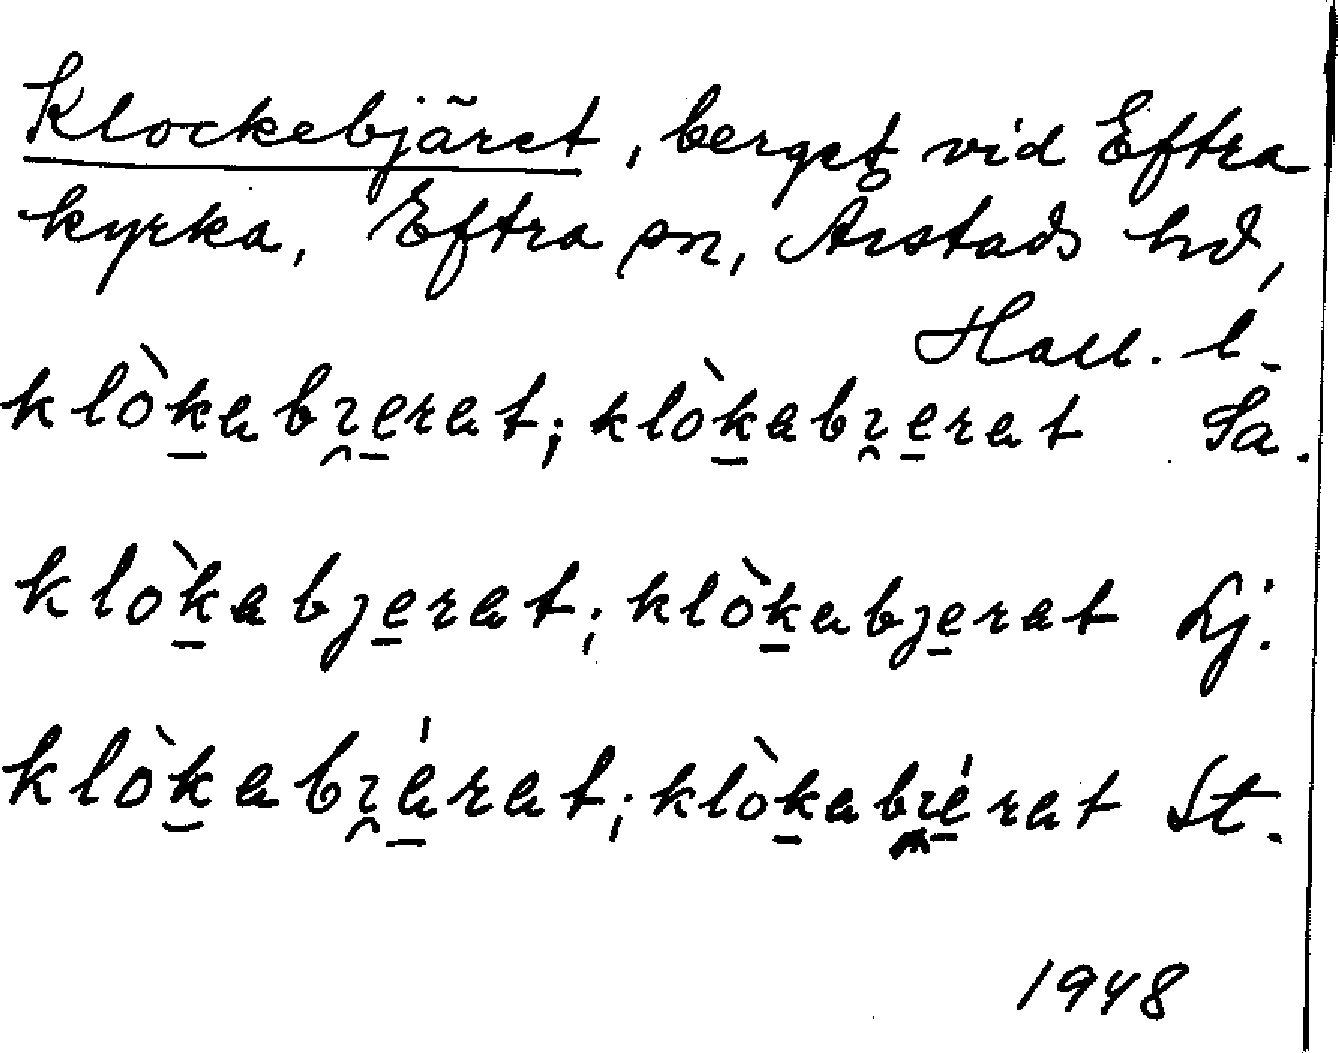 Klockebjäret, berget vid Eftra
kyrka, Eftra sn, Årstads hd,
Hall. l.
klòk̠abɪ̯e̠rat; klòk̠abɪ̯e̠rat Sä.
klòk̠abje̠rat; klòk̠abje̠rat Lj.
klòk̠abɪ̯é̠rat; klòk̠abɪ̯é̠rat St.
1948